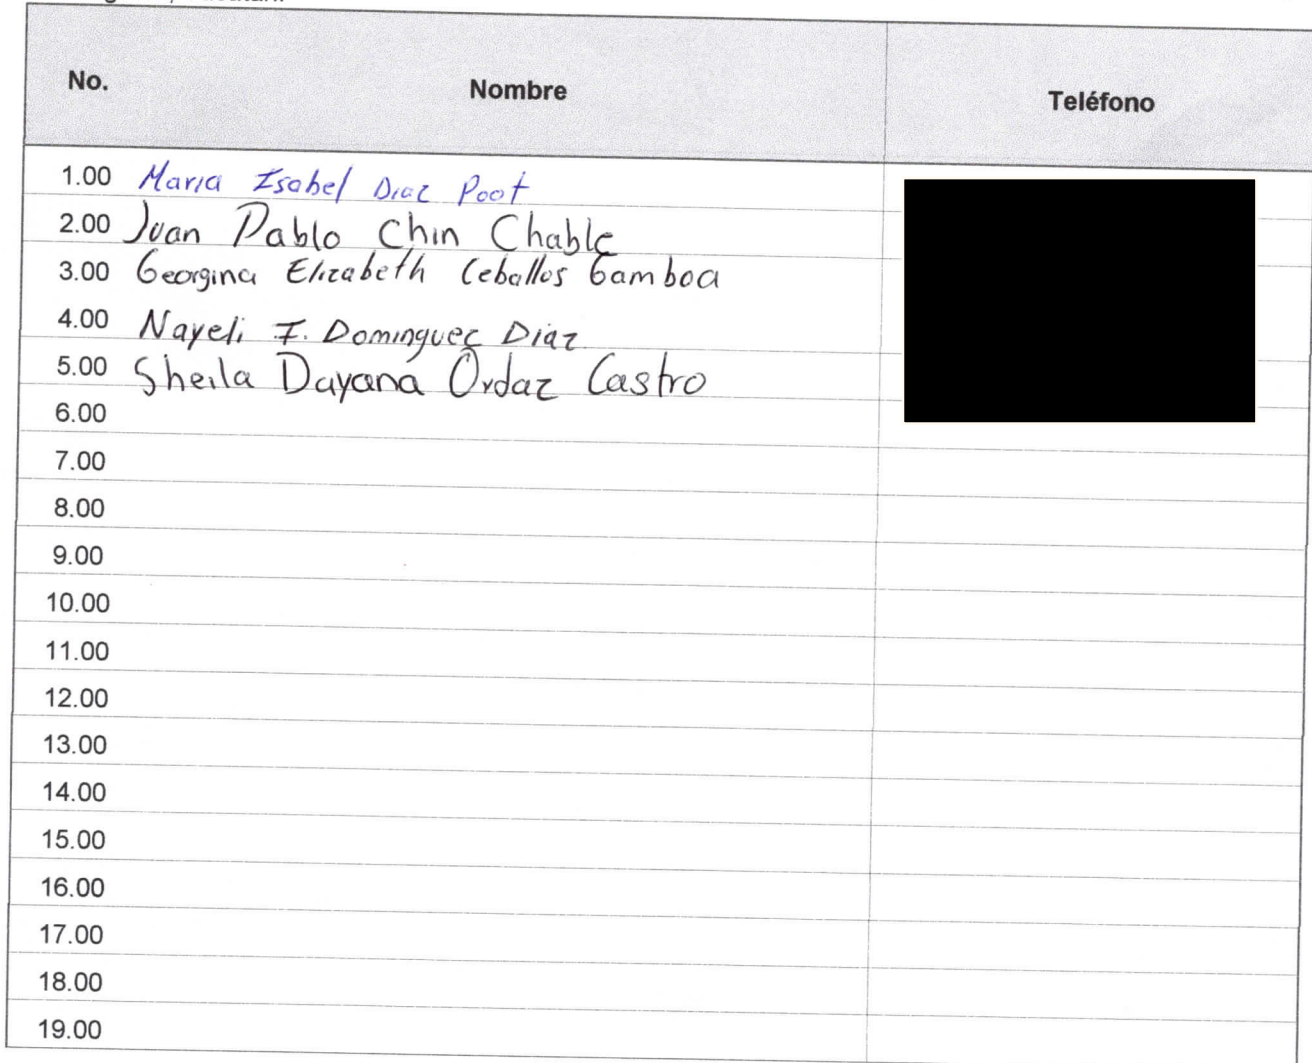 No. Nombre Teléfono
1.00 Maria Isabel Diaz Poot
2.00 Juan Pablo Chin Chable
3.00 Georgina Elizabeth Ceballos Gamboa
4.00 Nayeli I. Dominguez Diaz
5.00 Sheila Dayana Ordaz Castro
6.00
7.00
8.00
9.00
10.00
11.00
12.00
13.00
14.00
15.00
16.00
17.00
18.00
19.00